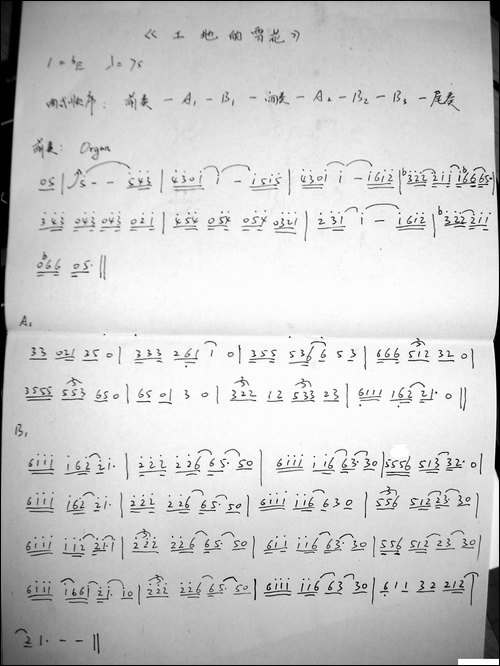 《工地的雪花》
1=♭E ♩=75
曲式顺序: 前奏 — A₁ — B₁ — 间奏 — A₂ — B₂ — B₃ — 尾奏
前奏: Organ
05 | 5 - - 543 | 4301 1 - 1515 | 4301 1 - 1612 | ♭322 211 1♭6665·
343 043 043 021 | 454 054 054 0321 | 231 1 - 1612 | ♭322 211
0♭66 05· ||
A₁
33 021 25 0 | 333 261 1 0 | 355 536 6 53 | 666 512 32 0 |
3555 553 65 0 | 65 01 3 0 | 322 12 533 23 | 6111 162 21· 0 ||
B₁
6111 162 21· | 222 226 65· 50 | 6111 116 63· 30 | 5556 513 32· 0 |
6111 162 21· | 222 226 65· 50 | 6111 116 63 0 | 556 512 23· 30 |
6111 112 21·1 | 222 226 65· 50 | 611 116 63· 30 | 556 512 23 30 |
6111 1661 21· 10 | 222 226 65· 50 | 6111 116 63 30 | 611 32 212 |
21· - - ||